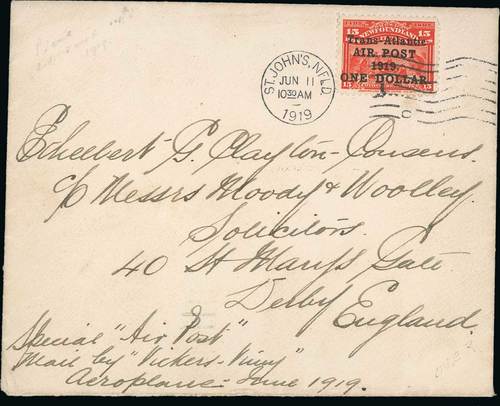 15 NEWFOUNDLAND 15
Trans-Atlantic
AIR POST
1919.
ONE DOLLAR.
15 15
ST. JOHN'S, NFLD.
JUN 11
10 30 AM
1919
Ethelbert G. Clayton-Cousens.
c/o Messrs Moody & Woolley.
Solicitors.
40 St Marys Gate.
Derby
England.
Special "Air Post"
Mail by "Vickers-Vimy"
Aeroplane - June 1919.